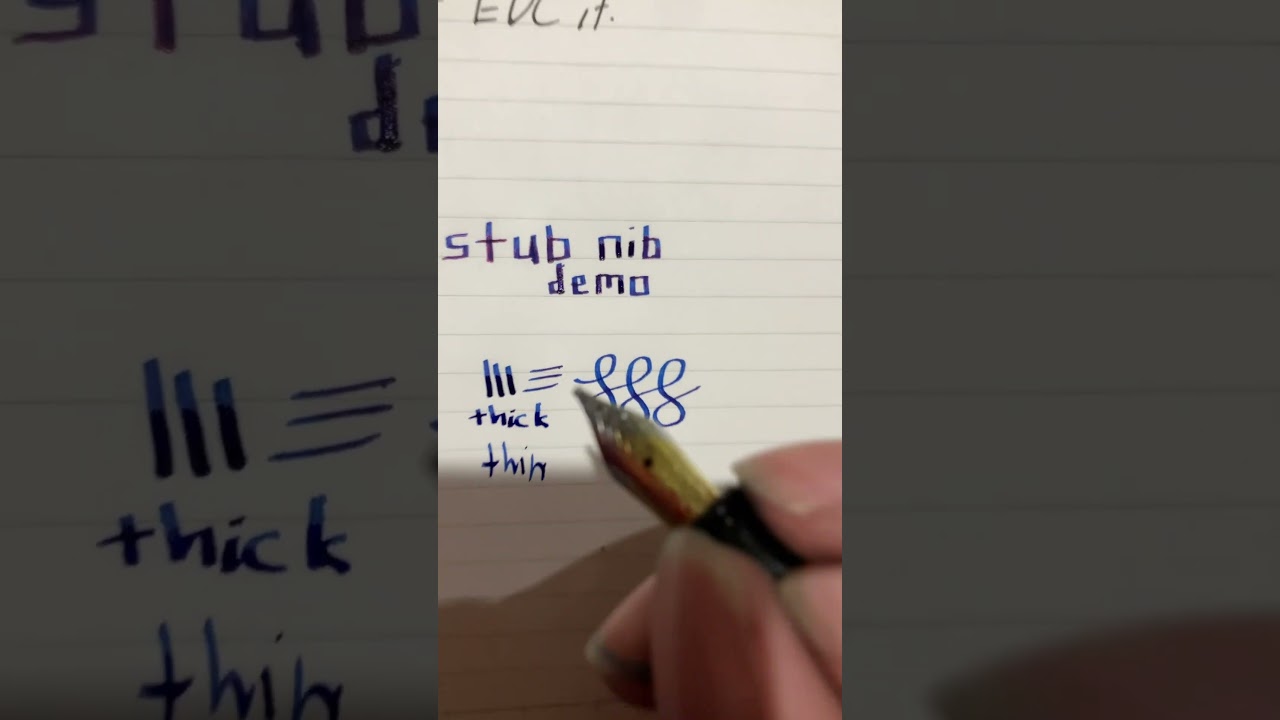 EDC it.
stub nib
demo
thick
thin